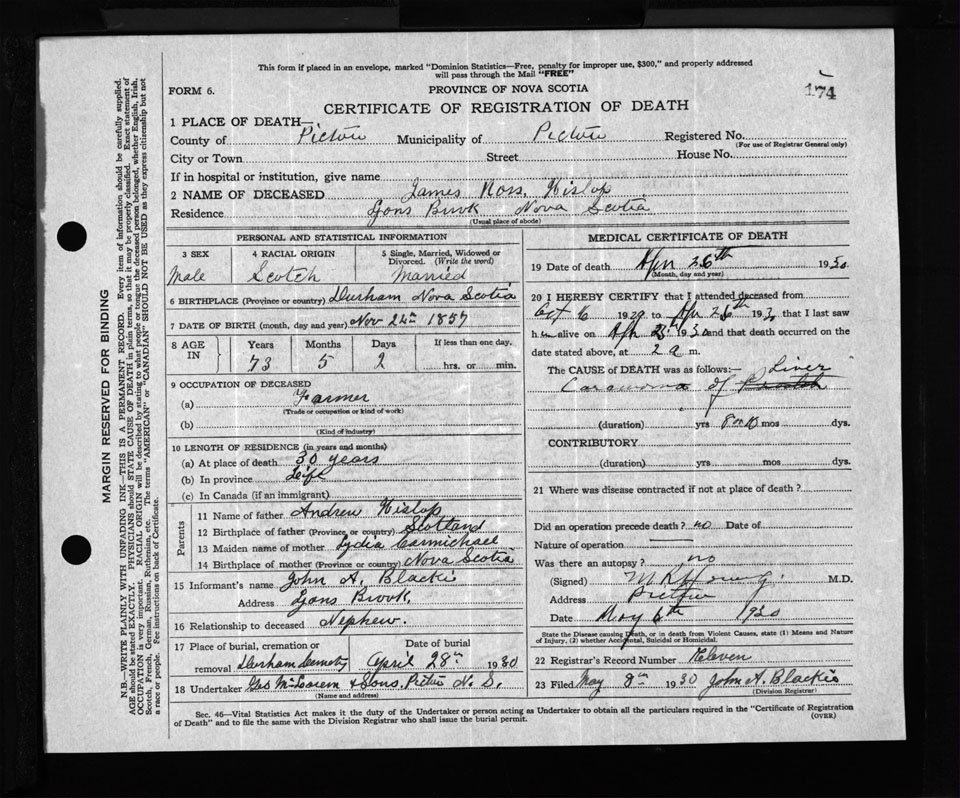 This form if placed in an envelope, marked "Dominion Statistics—Free, penalty for improper use, $300," and properly addressed
will pass through the Mail "FREE"
FORM 6.
PROVINCE OF NOVA SCOTIA
174
CERTIFICATE OF REGISTRATION OF DEATH
1 PLACE OF DEATH—
County of Pictou Municipality of Pictou Registered No.
(For use of Registrar General only)
City or Town Street House No.
If in hospital or institution, give name
2 NAME OF DECEASED James Ross Hislop
Residence Lyons Brook Nova Scotia
(Usual place of abode)
PERSONAL AND STATISTICAL INFORMATION
3 SEX 4 RACIAL ORIGIN 5 Single, Married, Widowed or
Divorced. (Write the word)
Male Scotch Married
6 BIRTHPLACE (Province or country) Durham Nova Scotia
7 DATE OF BIRTH (month, day and year) Nov 24th 1857
8 AGE IN Years Months Days If less than one day.
73 5 2 hrs. or min.
9 OCCUPATION OF DECEASED
(a) Farmer
(Trade or occupation or kind of work)
(b)
(Kind of industry)
10 LENGTH OF RESIDENCE (in years and months)
(a) At place of death 30 years
(b) In province Life
(c) In Canada (if an immigrant)
Parents
11 Name of father Andrew Hislop
12 Birthplace of father (Province or country) Scotland
13 Maiden name of mother Lydia Carmichael
14 Birthplace of mother (Province or country) Nova Scotia
15 Informant's name John A. Blackie
Address Lyons Brook
16 Relationship to deceased Nephew.
17 Place of burial, cremation or Date of burial
removal Durham Cemety April 28th 1930
18 Undertaker & Sons. Pictou N. S.
(Name and address)
MEDICAL CERTIFICATE OF DEATH
19 Date of death Apr 26th 1930
(Month, day and year)
20 I HEREBY CERTIFY that I attended deceased from
Oct 6 1929 to Apr 26th 1930 that I last saw
h alive on Apr 1930 and that death occurred on
date stated above, at 2 a m.
The CAUSE of DEATH was as follows:— Liver
of
(duration) yrs mos dys.
CONTRIBUTORY
(duration) yrs mos dys.
21 Where was disease contracted if not at place of death?
Did an operation precede death? no Date of
Nature of operation
Was there an autopsy? no
(Signed) M.D.
Address Pictou
Date May 6th 1930
State the Disease causing Death, or in death from Violent Causes, state (1) Means and Nature
of Injury, (2) whether Accidental, Suicidal or Homicidal.
22 Registrar's Record Number Eleven
23 Filed May 8th 1930 John A. Blackie
(Division Registrar)
Sec. 46—Vital Statistics Act makes it the duty of the Undertaker or person acting as Undertaker to obtain all the particulars required in the "Certificate of Registration
of Death" and to file the same with the Division Registrar who shall issue the burial permit.
(OVER)
MARGIN RESERVED FOR BINDING
N.B.—WRITE PLAINLY WITH UNFADING INK—THIS IS A PERMANENT RECORD. Every item of information should be carefully supplied.
AGE should be stated EXACTLY. PHYSICIANS should STATE CAUSE OF DEATH in plain terms, so that it may be properly classified. Exact statement of
OCCUPATION is very important. RACIAL ORIGIN will be described by stating to what people or tongue the deceased person belonged, whether English, Irish,
Scotch, French, German, Russian, Ruthenian, etc. The terms "AMERICAN" or "CANADIAN" SHOULD NOT BE USED as they express citizenship but not
a race or people. Fee instructions on back of Certificate.